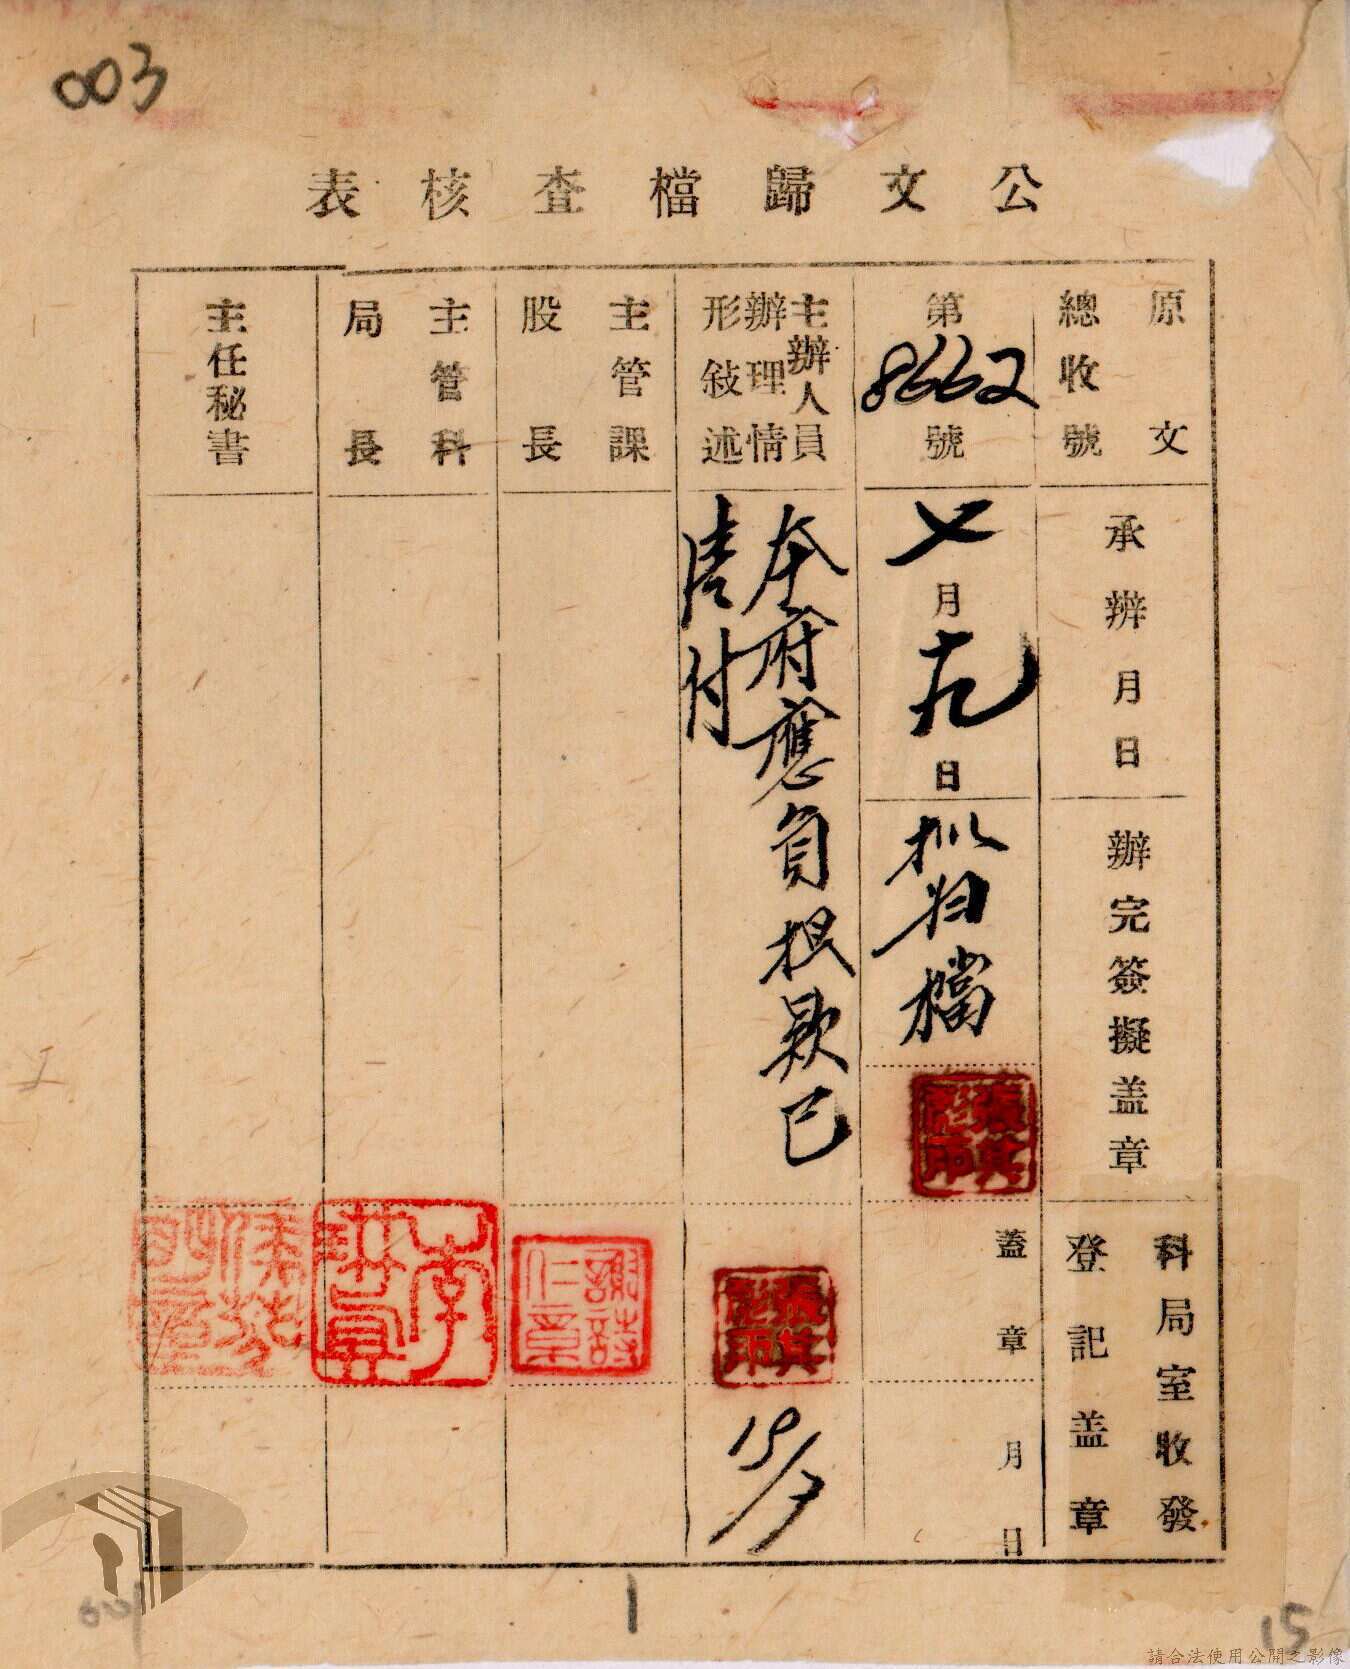 003
公文歸檔查核表
原文
總收號
第8662號
承辦月日
七月十九日
辦完簽擬盖章
擬归檔
張其
科局室收發
登記盖章
蓋章
月日
主辦人員
辦理情
形敍述
本府應負担款已
清付
19/7
主管課
股長
謝詩
仁章
主管科
局長
李
主任秘書
1
15
請合法使用公開之影像